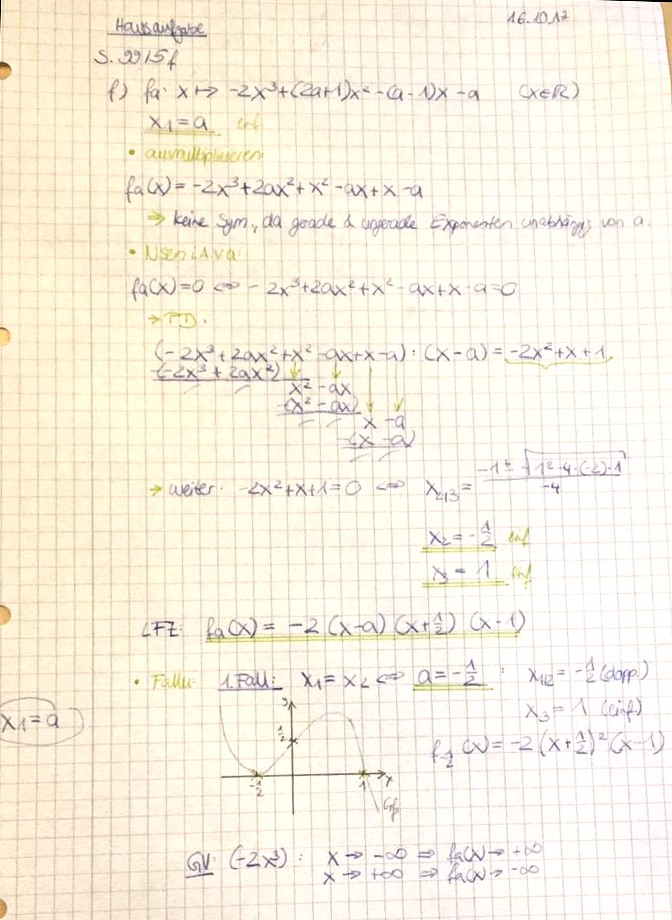 Hausaufgabe 16.10.17
S. 99/5f
f) fa: x ↦ -2x³+(2a+1)x²-(a-1)x-a (x∈ℝ)
x₁=a einf
• ausmultiplizieren:
fa(x)=-2x³+2ax²+x²-ax+x-a
⇒ keine Sym., da gerade & ungerade Exponenten unabhängig von a.
• Nsen i.A.v.a:
fa(x)=0 ⇔ -2x³+2ax²+x²-ax+x-a=0
→ PD:
(-2x³+2ax²+x²-ax+x-a):(x-a)=-2x²+x+1
(-2x³+2ax²)
x²-ax
-(x²-ax)
x-a
-(x-a)
→ weiter: -2x²+x+1=0 ⇔ x₂/₃= (-1±√(1²-4·(-2)·1))/-4
x₂=-1/2 einf
x₃=1 einf
LFZ: fa(x)=-2(x-a)(x+1/2)(x-1)
• Fallu: 1.Fall: x₁=x₂ ⇔ a=-1/2 : x₁/₂=-1/2 (dopp.)
x₁=a
x₃=1 (einf)
f-1/2(x)=-2(x+1/2)²(x-1)
y
1/2
-1/2 1 x
Gf
GV: (-2x³): x→-∞ ⇒ fa(x)→+∞
x→+∞ ⇒ fa(x)→-∞